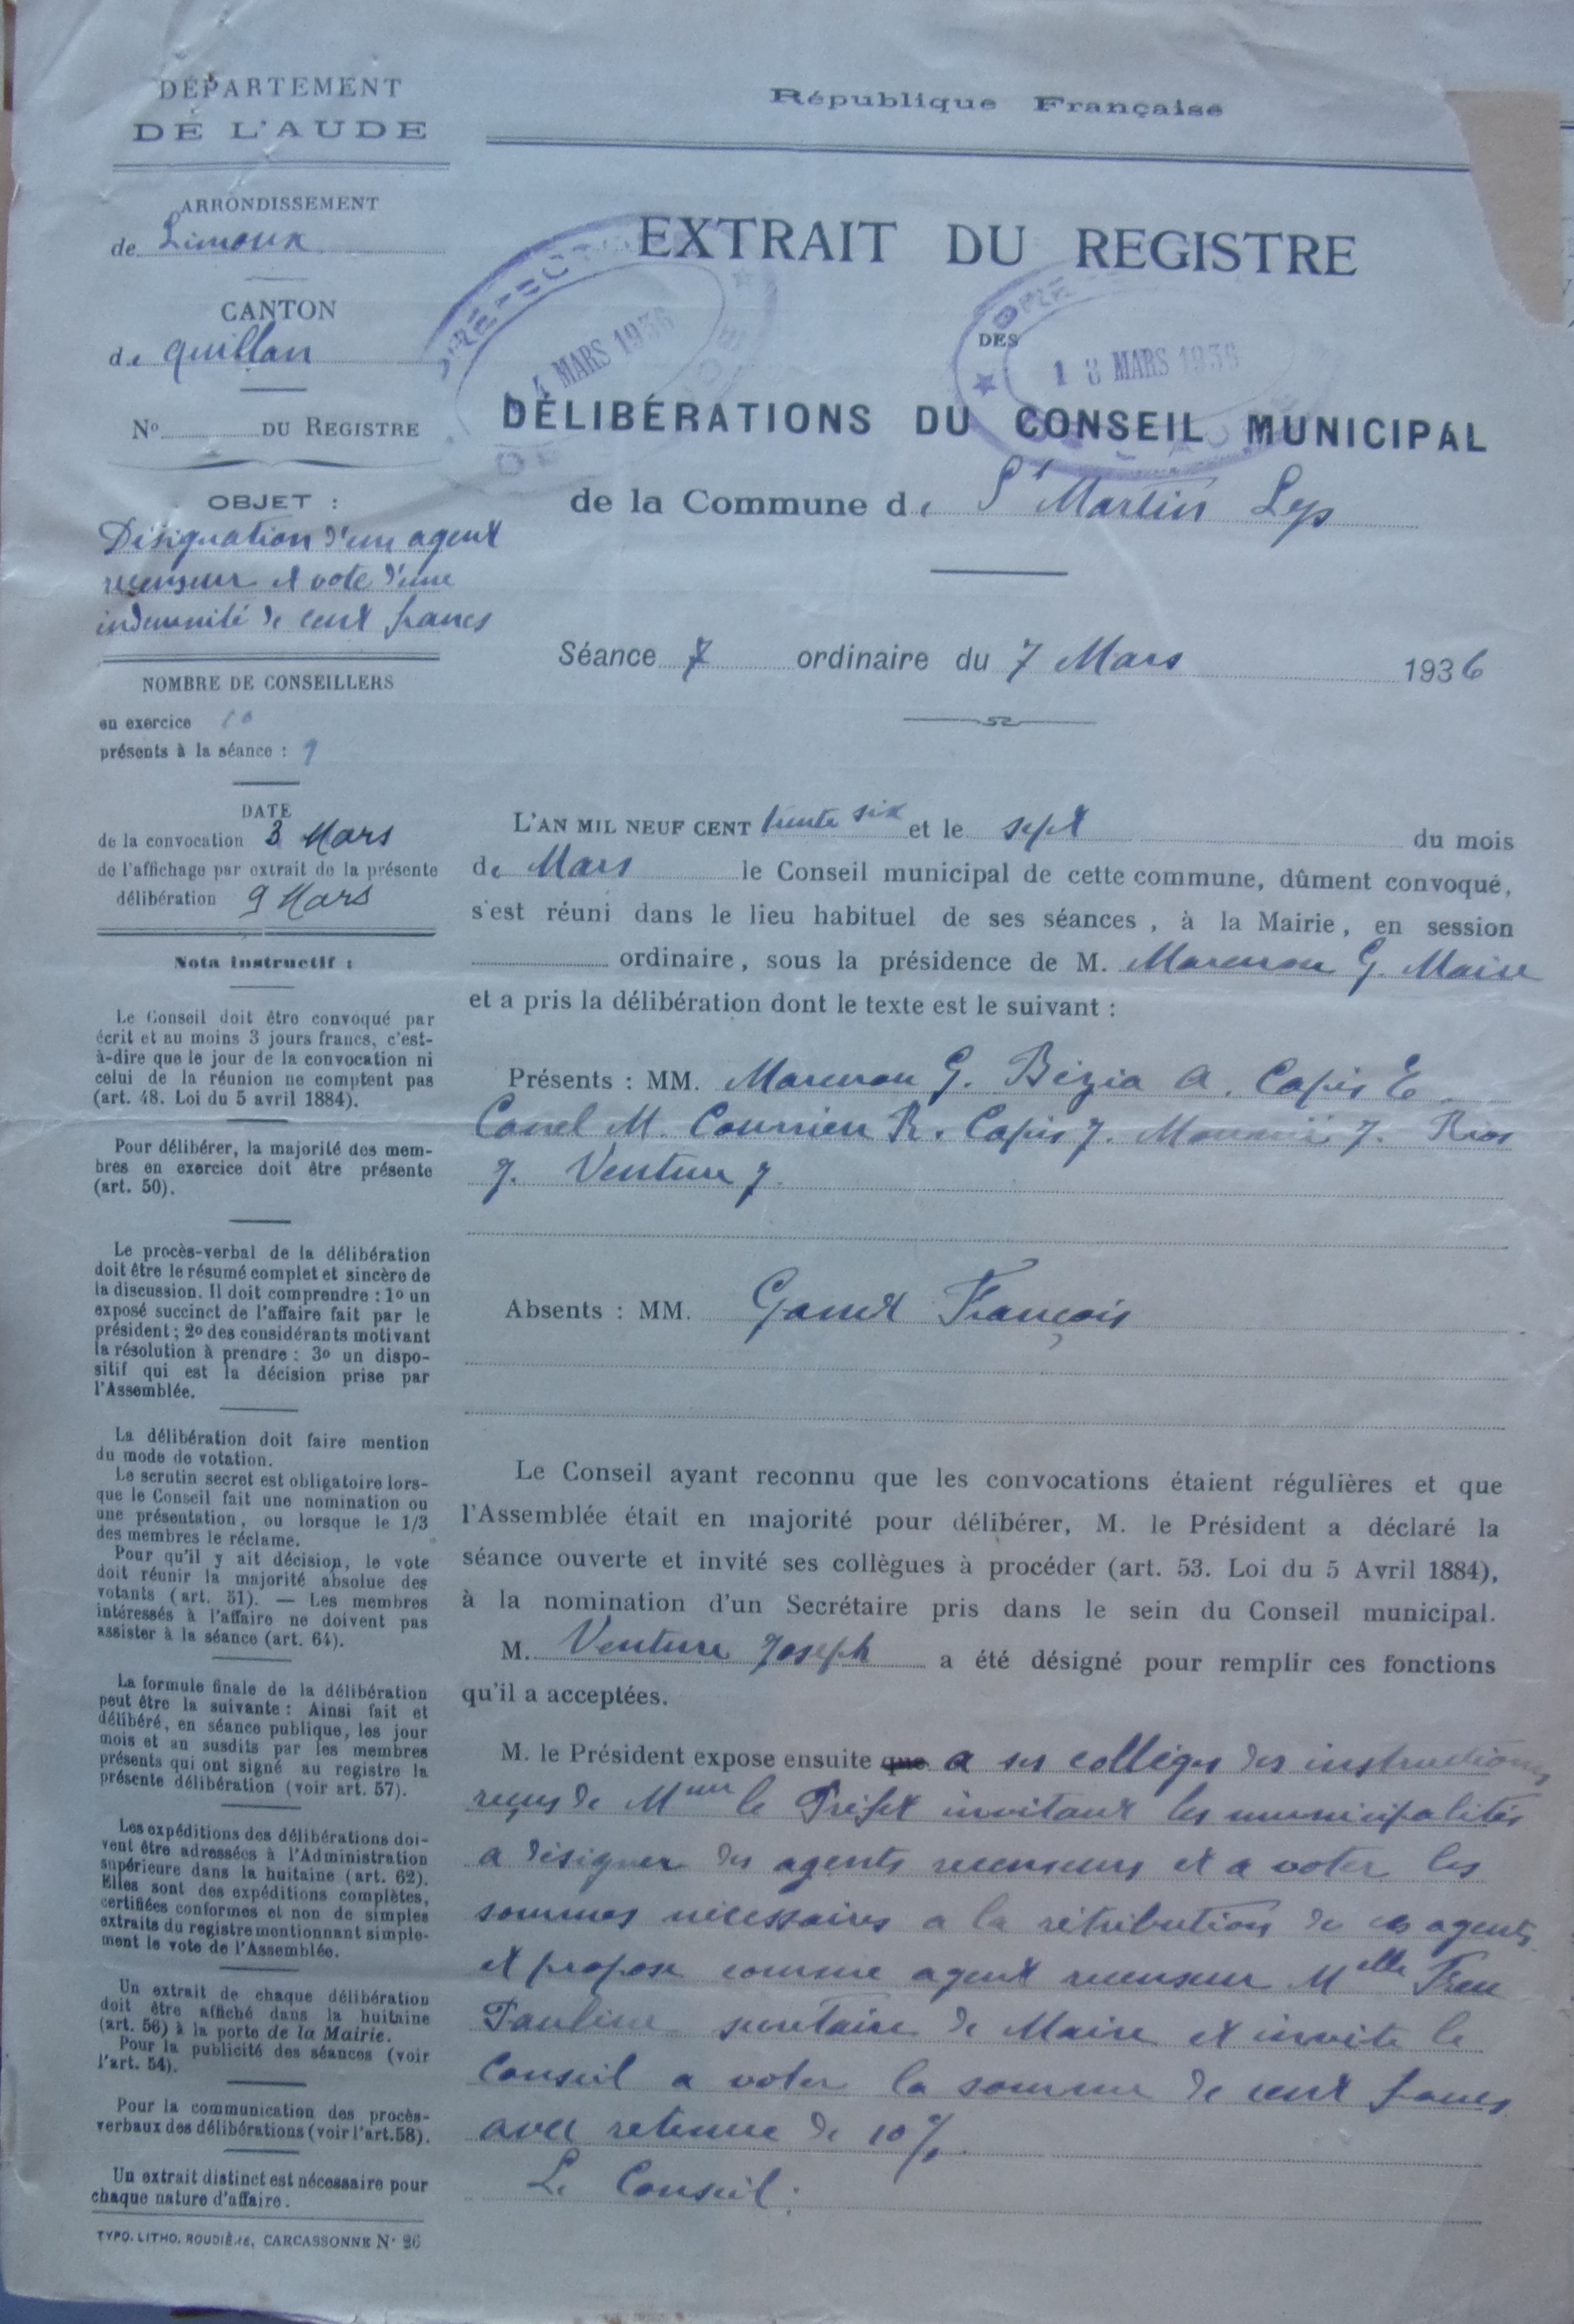 DÉPARTEMENT
DE L'AUDE
ARRONDISSEMENT
de Limoux
CANTON
de Quillan
No DU REGISTRE
OBJET :
Désignation d'un agent
recenseur et vote d'une
indemnité de cent francs
NOMBRE DE CONSEILLERS
en exercice 10
présents à la séance : 9
DATE
de la convocation 3 Mars
de l'affichage par extrait de la présente
délibération 9 Mars
Nota instructif :
Le Conseil doit être convoqué par
écrit et au moins 3 jours francs, c'est-
à-dire que le jour de la convocation ni
celui de la réunion ne comptent pas
(art. 48. Loi du 5 avril 1884).
Pour délibérer, la majorité des mem-
bres en exercice doit être présente
(art. 50).
Le procès-verbal de la délibération
doit être le résumé complet et sincère de
la discussion. Il doit comprendre : 1o un
exposé succinct de l'affaire fait par le
président ; 2o des considérants motivant
la résolution à prendre : 3o un dispo-
sitif qui est la décision prise par
l'Assemblée.
La délibération doit faire mention
du mode de votation.
Le scrutin secret est obligatoire lors-
que le Conseil fait une nomination ou
une présentation, ou lorsque le 1/3
des membres le réclame.
Pour qu'il y ait décision, le vote
doit réunir la majorité absolue des
votants (art. 51). — Les membres
intéressés à l'affaire ne doivent pas
assister à la séance (art. 64).
La formule finale de la délibération
peut être la suivante : Ainsi fait et
délibéré, en séance publique, les jour
mois et an susdits par les membres
présents qui ont signé au registre la
présente délibération (voir art. 57).
Les expéditions des délibérations doi-
vent être adressées à l'Administration
supérieure dans la huitaine (art. 62).
Elles sont des expéditions complètes,
certifiées conformes et non de simples
extraits du registre mentionnant simple-
ment le vote de l'Assemblée.
Un extrait de chaque délibération
doit être affiché dans la huitaine
(art. 56) à la porte de la Mairie.
Pour la publicité des séances (voir
l'art. 54).
Pour la communication des procès-
verbaux des délibérations (voir l'art.58).
Un extrait distinct est nécessaire pour
chaque nature d'affaire.
TYPO. LITHO. ROUDIÈRE, CARCASSONNE No 26
République Française
EXTRAIT DU REGISTRE
4 MARS 1936
DES
18 MARS 1936
DÉLIBÉRATIONS DU CONSEIL MUNICIPAL
de la Commune de St Martin Lys
Séance ordinaire du 7 Mars 1936
L'AN MIL NEUF CENT trente six et le sept du mois
de Mars le Conseil municipal de cette commune, dûment convoqué,
s'est réuni dans le lieu habituel de ses séances, à la Mairie, en session
ordinaire, sous la présidence de M. G. Maire
et a pris la délibération dont le texte est le suivant :
Présents : MM. G. Bézia A. Capis E
Canel M. Courrieu R. Capis J. J. Rios
J. Venture J.
Absents : MM. François
Le Conseil ayant reconnu que les convocations étaient régulières et que
l'Assemblée était en majorité pour délibérer, M. le Président a déclaré la
séance ouverte et invité ses collègues à procéder (art. 53. Loi du 5 Avril 1884),
à la nomination d'un Secrétaire pris dans le sein du Conseil municipal.
M. Venture Joseph a été désigné pour remplir ces fonctions
qu'il a acceptées.
M. le Président expose ensuite que a ses collègues des instructions
reçues de Msieur le Préfet invitant les municipalités
a désigner des agents recenseurs et a voter les
sommes nécessaires a la rétribution de ces agents
et propose comme agent recenseur Melle
Pauline secrétaire de Mairie et invite le
Conseil a voter la somme de cent francs
avec retenue de 10 %.
Le Conseil :